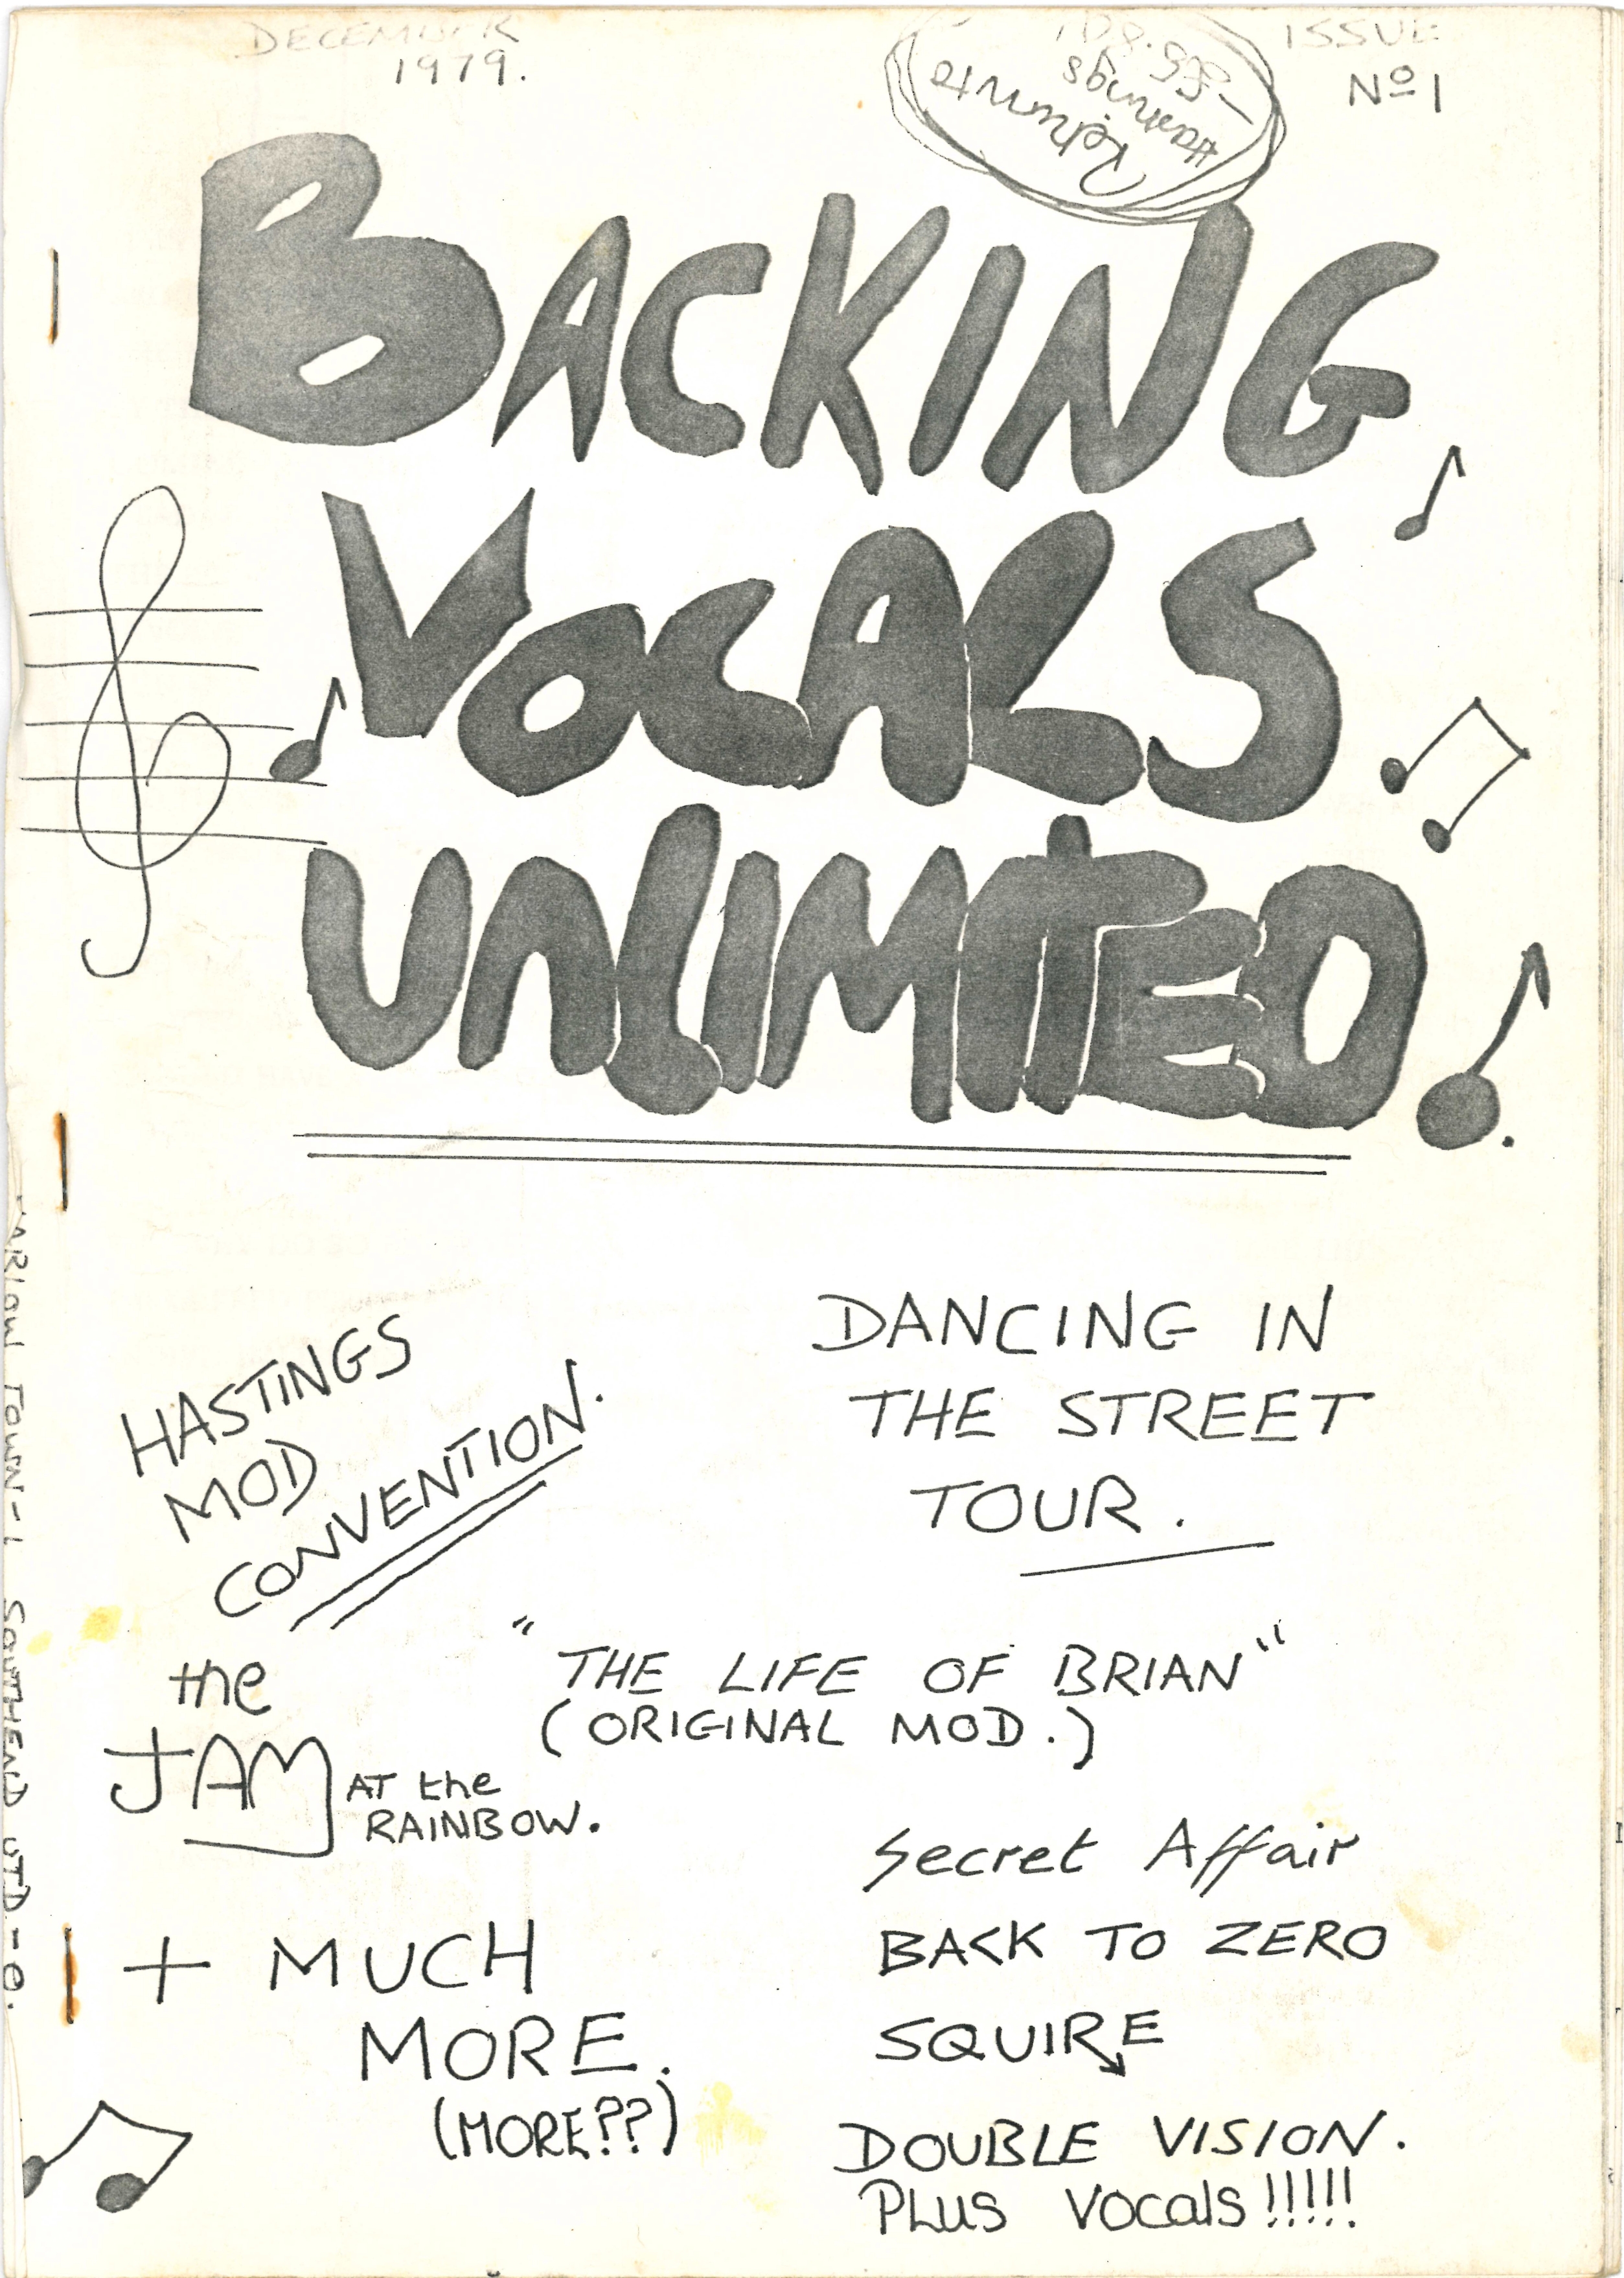 DECEMBER
1979.
ISSUE
Nº 1
Return to
Hammings
BACKING
VOCALS
UNLIMITED!
HASTINGS
MOD
CONVENTION.
DANCING IN
THE STREET
TOUR.
"THE LIFE OF BRIAN"
(ORIGINAL MOD.)
the
JAM AT the
RAINBOW.
Secret Affair
BACK TO ZERO
SQUIRE
DOUBLE VISION.
PLUS VOCALS!!!!!
+ MUCH
MORE.
(MORE??)
HARLOW TOWN-1 SOUTHEND UTD-0.